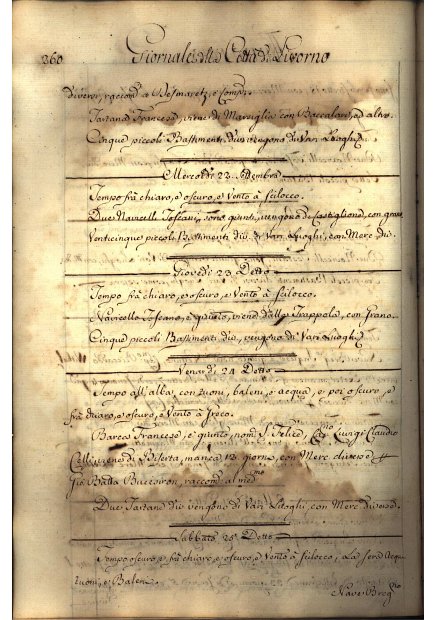 260 Giornale della Città di Livorno
diversi, raccom. a Desmaretz, e Comp.
Tartana Francese, viene di Marsiglia con Baccalari, ed altro.
Cinque piccoli Bastimenti div. vengono di Vari Luoghi
Mercordì 22 Settembre
Tempo frà chiaro, e oscuro, e Vento à Scilocco.
Due Navicelli Toscani, sono giunti, vengono di Castiglione, con grano
Venticinque piccoli Bastimenti div. di Vari Luoghi, con Merc. div.
Giovedì 23 Detto
Tempo frà chiaro, e oscuro, e Vento à Scilocco.
Navicello Toscano, è giunto, viene dalla Trappola, con Grano.
Cinque piccoli Bastimenti div. vengono di Vari Luoghi
Venerdì 24 Detto
Tempo all'alba, con tuoni, baleni, e acqua, e poi oscuro, e
frà chiaro, e oscuro, e Vento à Greco.
Barca Francese, è giunto, nom. S. Felice, Luigi Claudio
viene di Biserta, manca 13 giorni, con Merc. diverse
Gio Batta raccom. al med.mo
Due Tartane div. vengono di Vari Luoghi, con Merc. diverse.
Sabbato 25 Detto
Tempo oscuro, e frà chiaro, e oscuro, e Vento à Scilocco, La sera Acqua
tuoni, e Baleni.
Nave